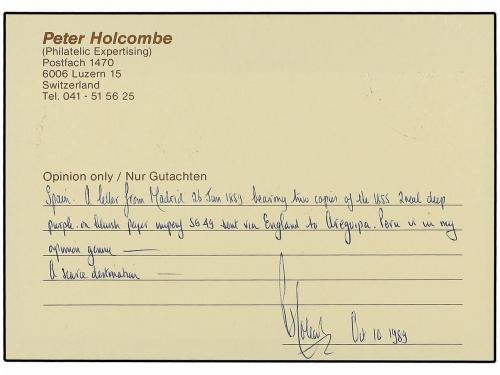 Peter Holcombe
(Philatelic Expertising)
Postfach 1470
6006 Luzern 15
Switzerland
Tel. 041 - 51 56 25
Opinion only / Nur Gutachten
Spain. A letter from Madrid 26 Jan bearing two copies of the 1855 2real deep
purple on bluish paper SG 49 sent via England to Arequipa. Peru is in my
opinion
A scarce destination
Oct 10 1989